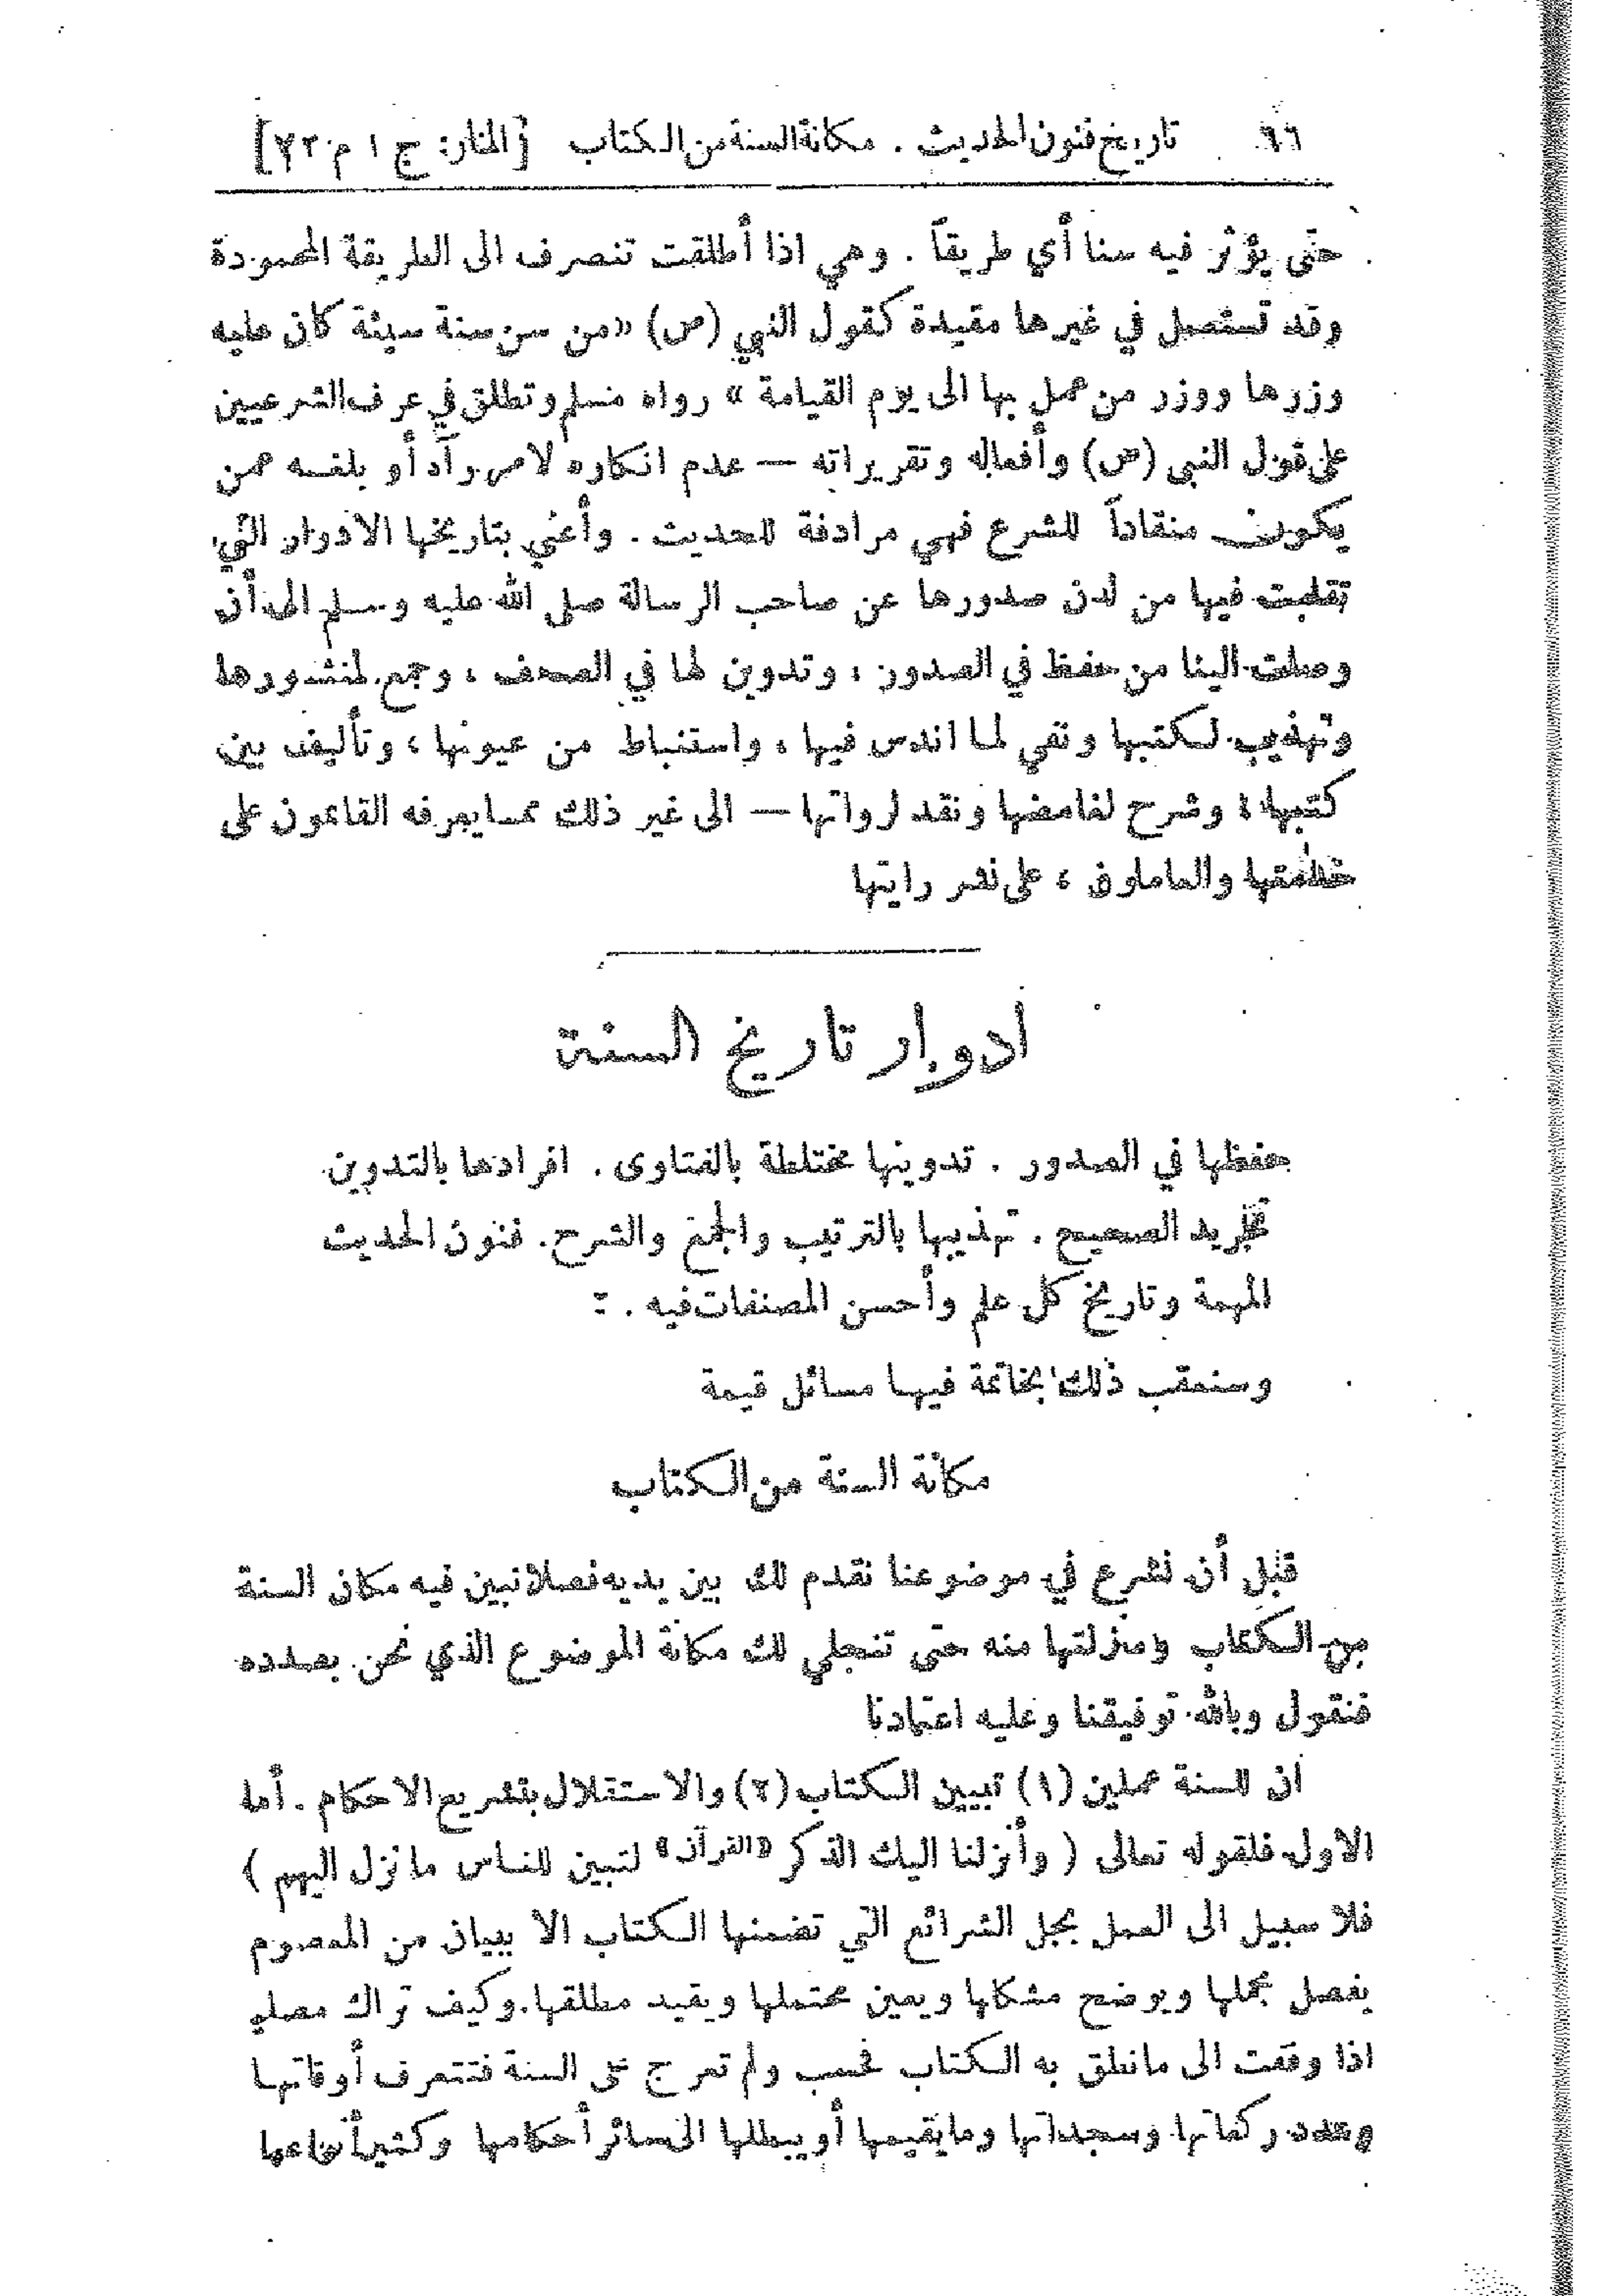 ٦٦ تاريخ فنون الحديث . مكانة السنة من الكتاب [المنار: ج ١ م ٢٢]
حتى يؤثر فيه سننا أي طريقاً . وهي اذا أطلقت تنصرف الى الطريقة المحمودة
وقد تستعمل في غيرها مقيدة كقول النبي (ص) «من سن سنة سيئة كان عليه
وزرها ووزر من عمل بها الى يوم القيامة » رواه مسلم وتطلق في عرف الشرعيين
على قول النبي (ص) وأفعاله وتقريراته — عدم انكاره لامر رآه أو بلغه عمن
يكون منقاداً للشرع فهي مرادفة للحديث . وأعني بتاريخها الادوار التي
تقلبت فيها من لدن صدورها عن صاحب الرسالة صلى الله عليه وسلم الى أن
وصلت الينا من حفظ في الصدور ، وتدوين لها في الصحف ، وجمع لمنثورها
وتهذيب لكتبها ونفي لما اندس فيها ، واستنباط من عيونها ، وتأليف بين
كتبها ، وشرح لغامضها ونقد لرواتها — الى غير ذلك مما يعرفه القائمون على
خدمتها والعاملون ، على نشر رايتها
ادوار تاريخ السنة
حفظها في الصدور . تدوينها مختلطة بالفتاوى . افرادها بالتدوين
تجريد الصحيح . تهذيبها بالترتيب والجمع والشرح . فنون الحديث
المهمة وتاريخ كل علم وأحسن المصنفات فيه .
وسنعقب ذلك بخاتمة فيها مسائل قيمة
مكانة السنة من الكتاب
قبل أن نشرع في موضوعنا نقدم لك بين يديه فصلا نبين فيه مكان السنة
من الكتاب ومنزلتها منه حتى تنجلي لك مكانة الموضوع الذي نحن بصدده
فنقول وبالله توفيقنا وعليه اعتمادنا
ان للسنة عملين (١) تبيين الكتاب (٢) والاستقلال بتشريع الاحكام . أما
الاول فلقوله تعالى ( وأنزلنا اليك الذكر «القرآن» لتبين للناس ما نزل اليهم )
فلا سبيل الى العمل بجل الشرائع التي تضمنها الكتاب الا ببيان من المعصوم
يفصل مجملها ويوضح مشكلها ويعين محتملها ويقيد مطلقها. وكيف تراك مصليا
اذا وقفت الى ما نطق به الكتاب فحسب ولم تعرج على السنة فتتعرف أوقاتها
وعدد ركعاتها وسجداتها وما يقيمها أو يبطلها الى سائر أحكامها وكثير أنواعها